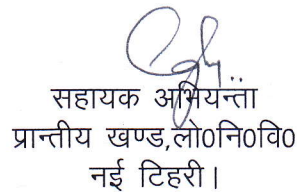 सहायक अभियन्ता
प्रान्तीय खण्ड,लो0नि0वि0
नई टिहरी।